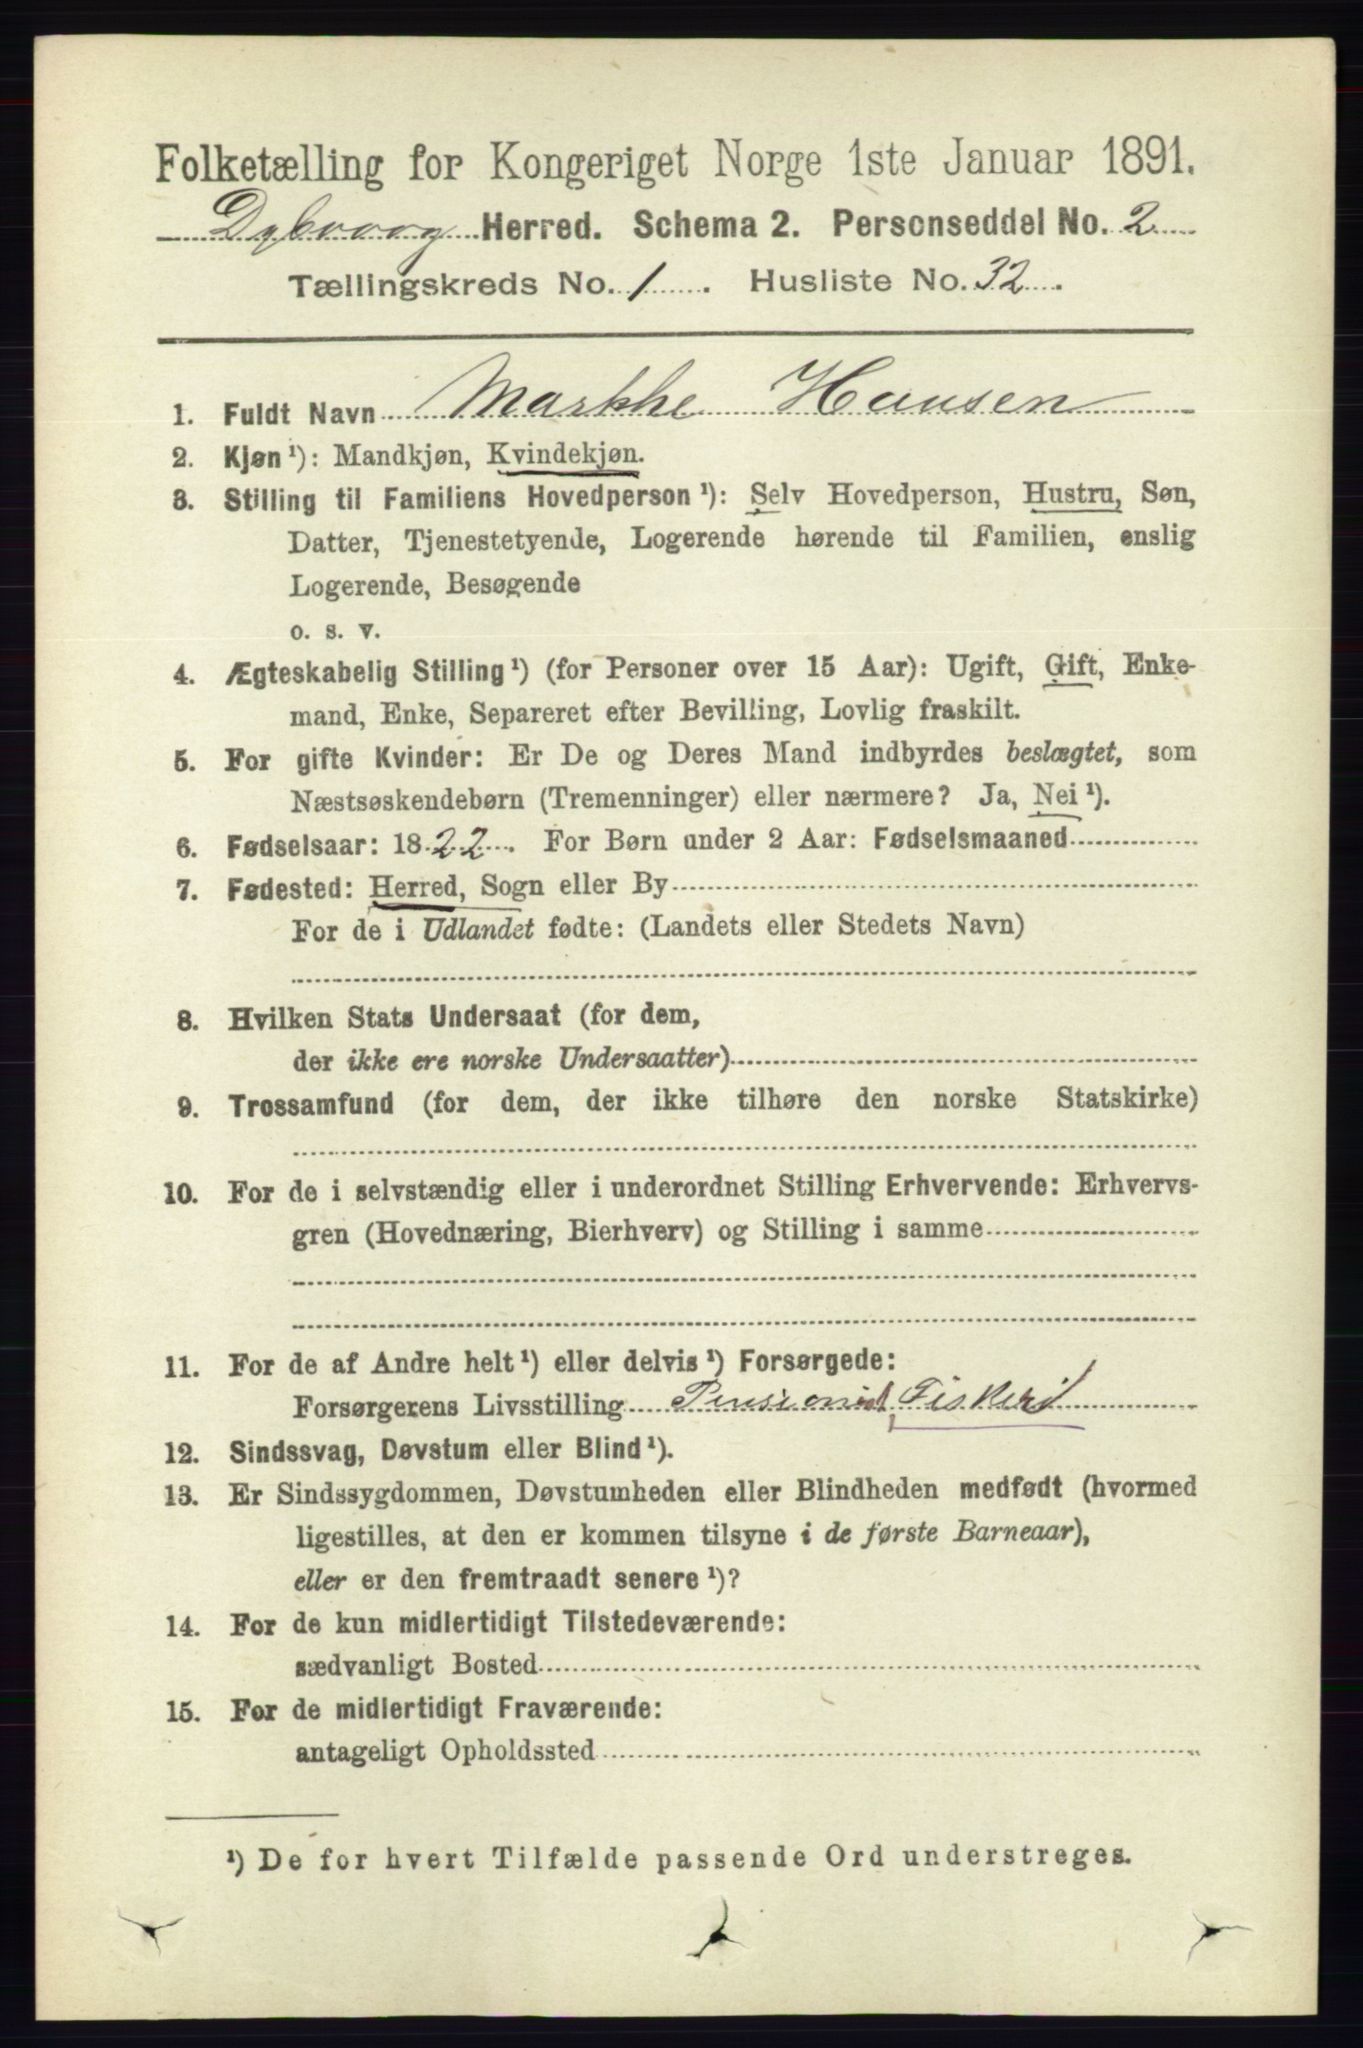 Folketælling for Kongeriget Norge 1ste Januar 1891.
Dybvaag Herred. Schema 2. Personseddel No. 2
Tællingskreds No. 1. Husliste No. 32.
1. Fuldt Navn Marthe Hansen
2. Kjøn ¹): Mandkjøn, Kvindekjøn.
3. Stilling til Familiens Hovedperson ¹): Selv Hovedperson, Hustru, Søn,
Datter, Tjenestetyende, Logerende hørende til Familien, enslig
Logerende, Besøgende
o. s. v.
4. Ægteskabelig Stilling ¹) (for Personer over 15 Aar): Ugift, Gift, Enke-
mand, Enke, Separeret efter Bevilling, Lovlig fraskilt.
5. For gifte Kvinder: Er De og Deres Mand indbyrdes beslægtet, som
Næstsøskendebørn (Tremenninger) eller nærmere? Ja, Nei ¹).
6. Fødselsaar: 1822. For Børn under 2 Aar: Fødselsmaaned
7. Fødested: Herred, Sogn eller By
For de i Udlandet fødte: (Landets eller Stedets Navn)
8. Hvilken Stats Undersaat (for dem,
der ikke ere norske Undersaatter)
9. Trossamfund (for dem, der ikke tilhøre den norske Statskirke)
10. For de i selvstændig eller i underordnet Stilling Erhvervende: Erhvervs-
gren (Hovednæring, Bierhverv) og Stilling i samme
11. For de af Andre helt ¹) eller delvis ¹) Forsørgede:
Forsørgerens Livsstilling Pensionist, Fiskeri
12. Sindssvag, Døvstum eller Blind ¹).
13. Er Sindssygdommen, Døvstumheden eller Blindheden medfødt (hvormed
ligestilles, at den er kommen tilsyne i de første Barneaar),
eller er den fremtraadt senere ¹)?
14. For de kun midlertidigt Tilstedeværende:
sædvanligt Bosted
15. For de midlertidigt Fraværende:
antageligt Opholdssted
¹) De for hvert Tilfælde passende Ord understreges.